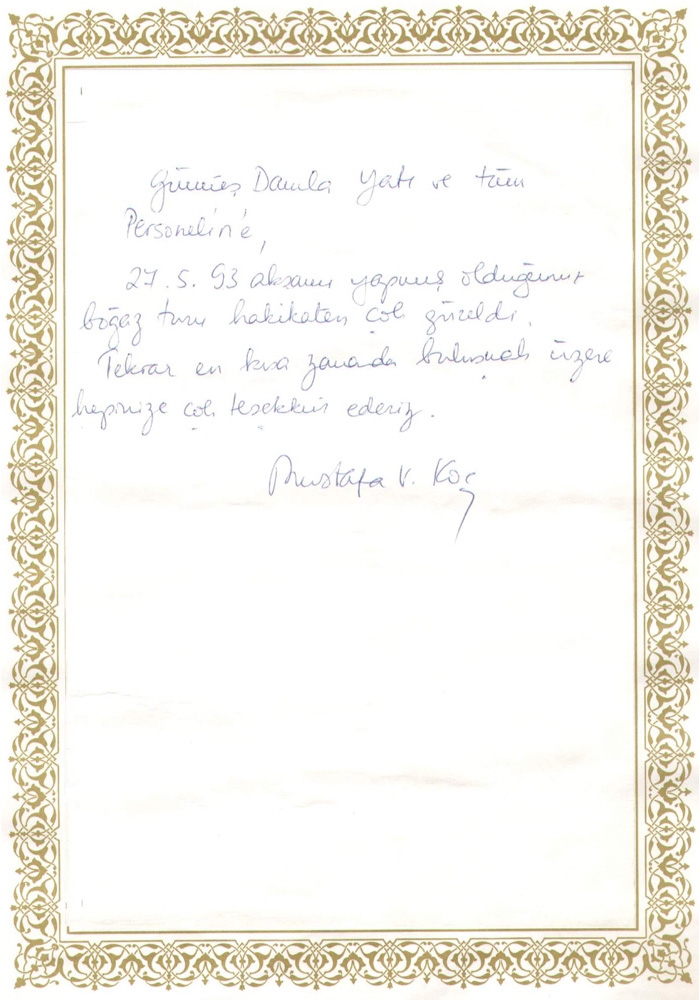 Gümüş Damla Yatı ve tüm
Personelin'e,
27. 5. 93 akşamı yapmış olduğumuz
boğaz turu hakikaten çok güzeldi.
Tekrar en kısa zamanda buluşmak üzere
hepinize çok teşekkür ederiz.
Mustafa V. Koç